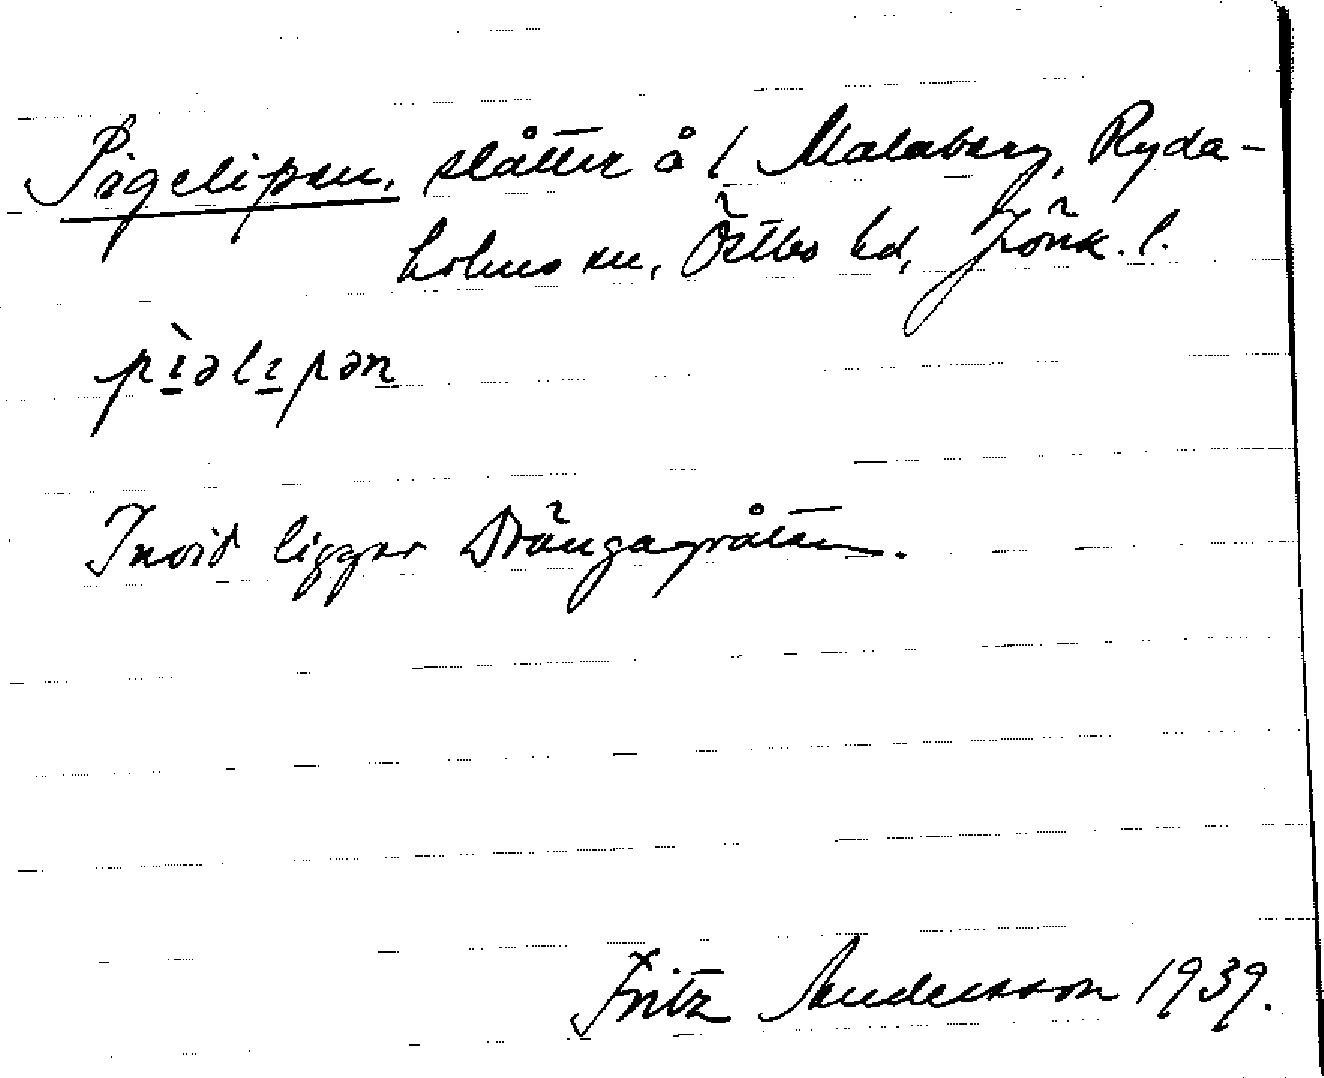 Pigelipen, slåtter å / Malaberg, Ryda-
holms sn, Östbo hd, Jönk. l.
pìəlıpən
Invid ligger Drängagråten.
Fritz Andersson 1939.